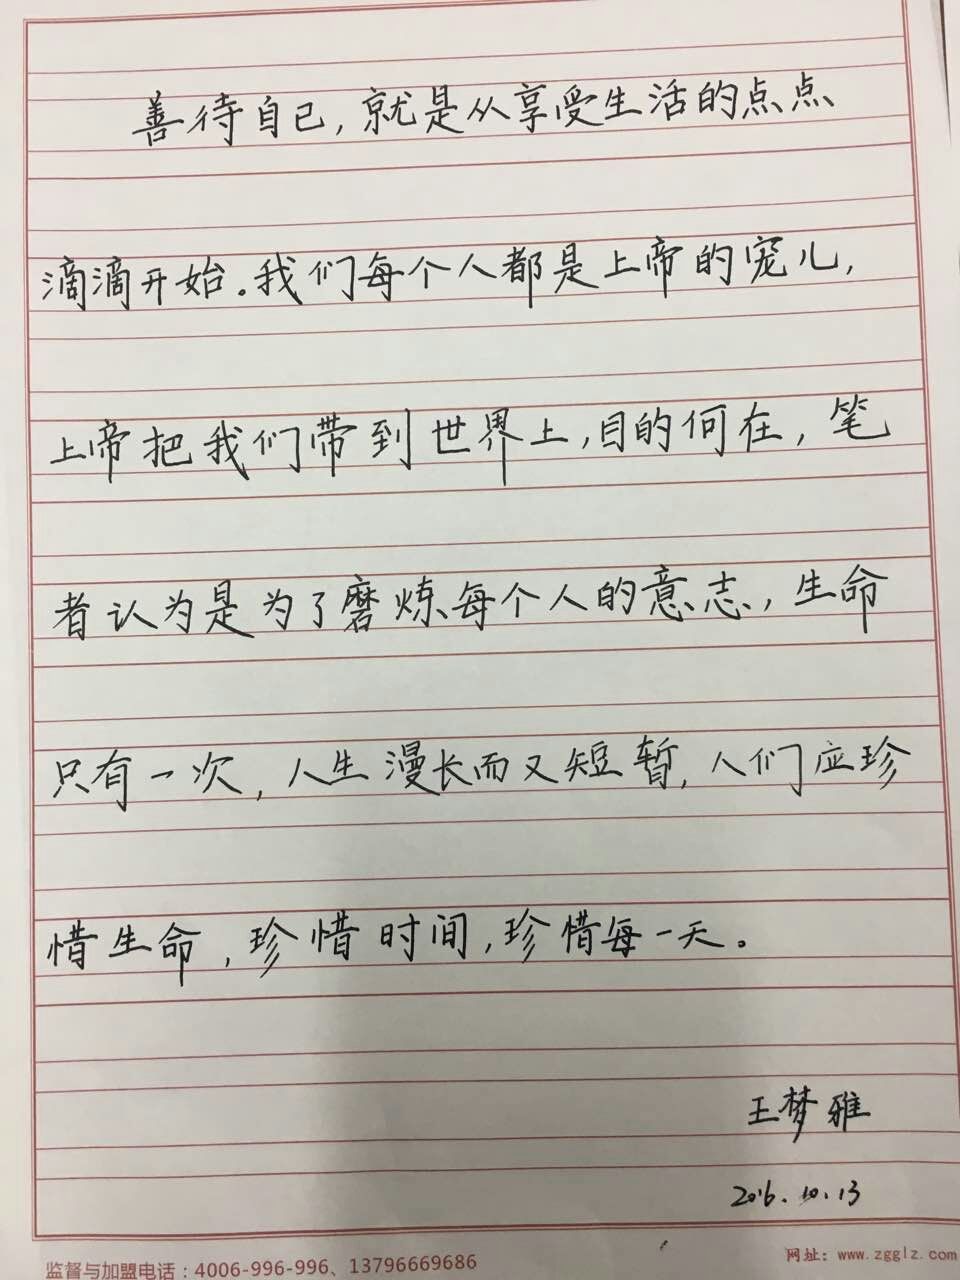 善待自己，就是从享受生活的点点
滴滴开始。我们每个人都是上帝的宠儿，
上帝把我们带到世界上，目的何在，笔
者认为是为了磨炼每个人的意志，生命
只有一次，人生漫长而又短暂，人们应珍
惜生命，珍惜时间，珍惜每一天。
王梦雅
2016.10.13
监督与加盟电话：4006-996-996、13796669686
网址：www.zgglz.com